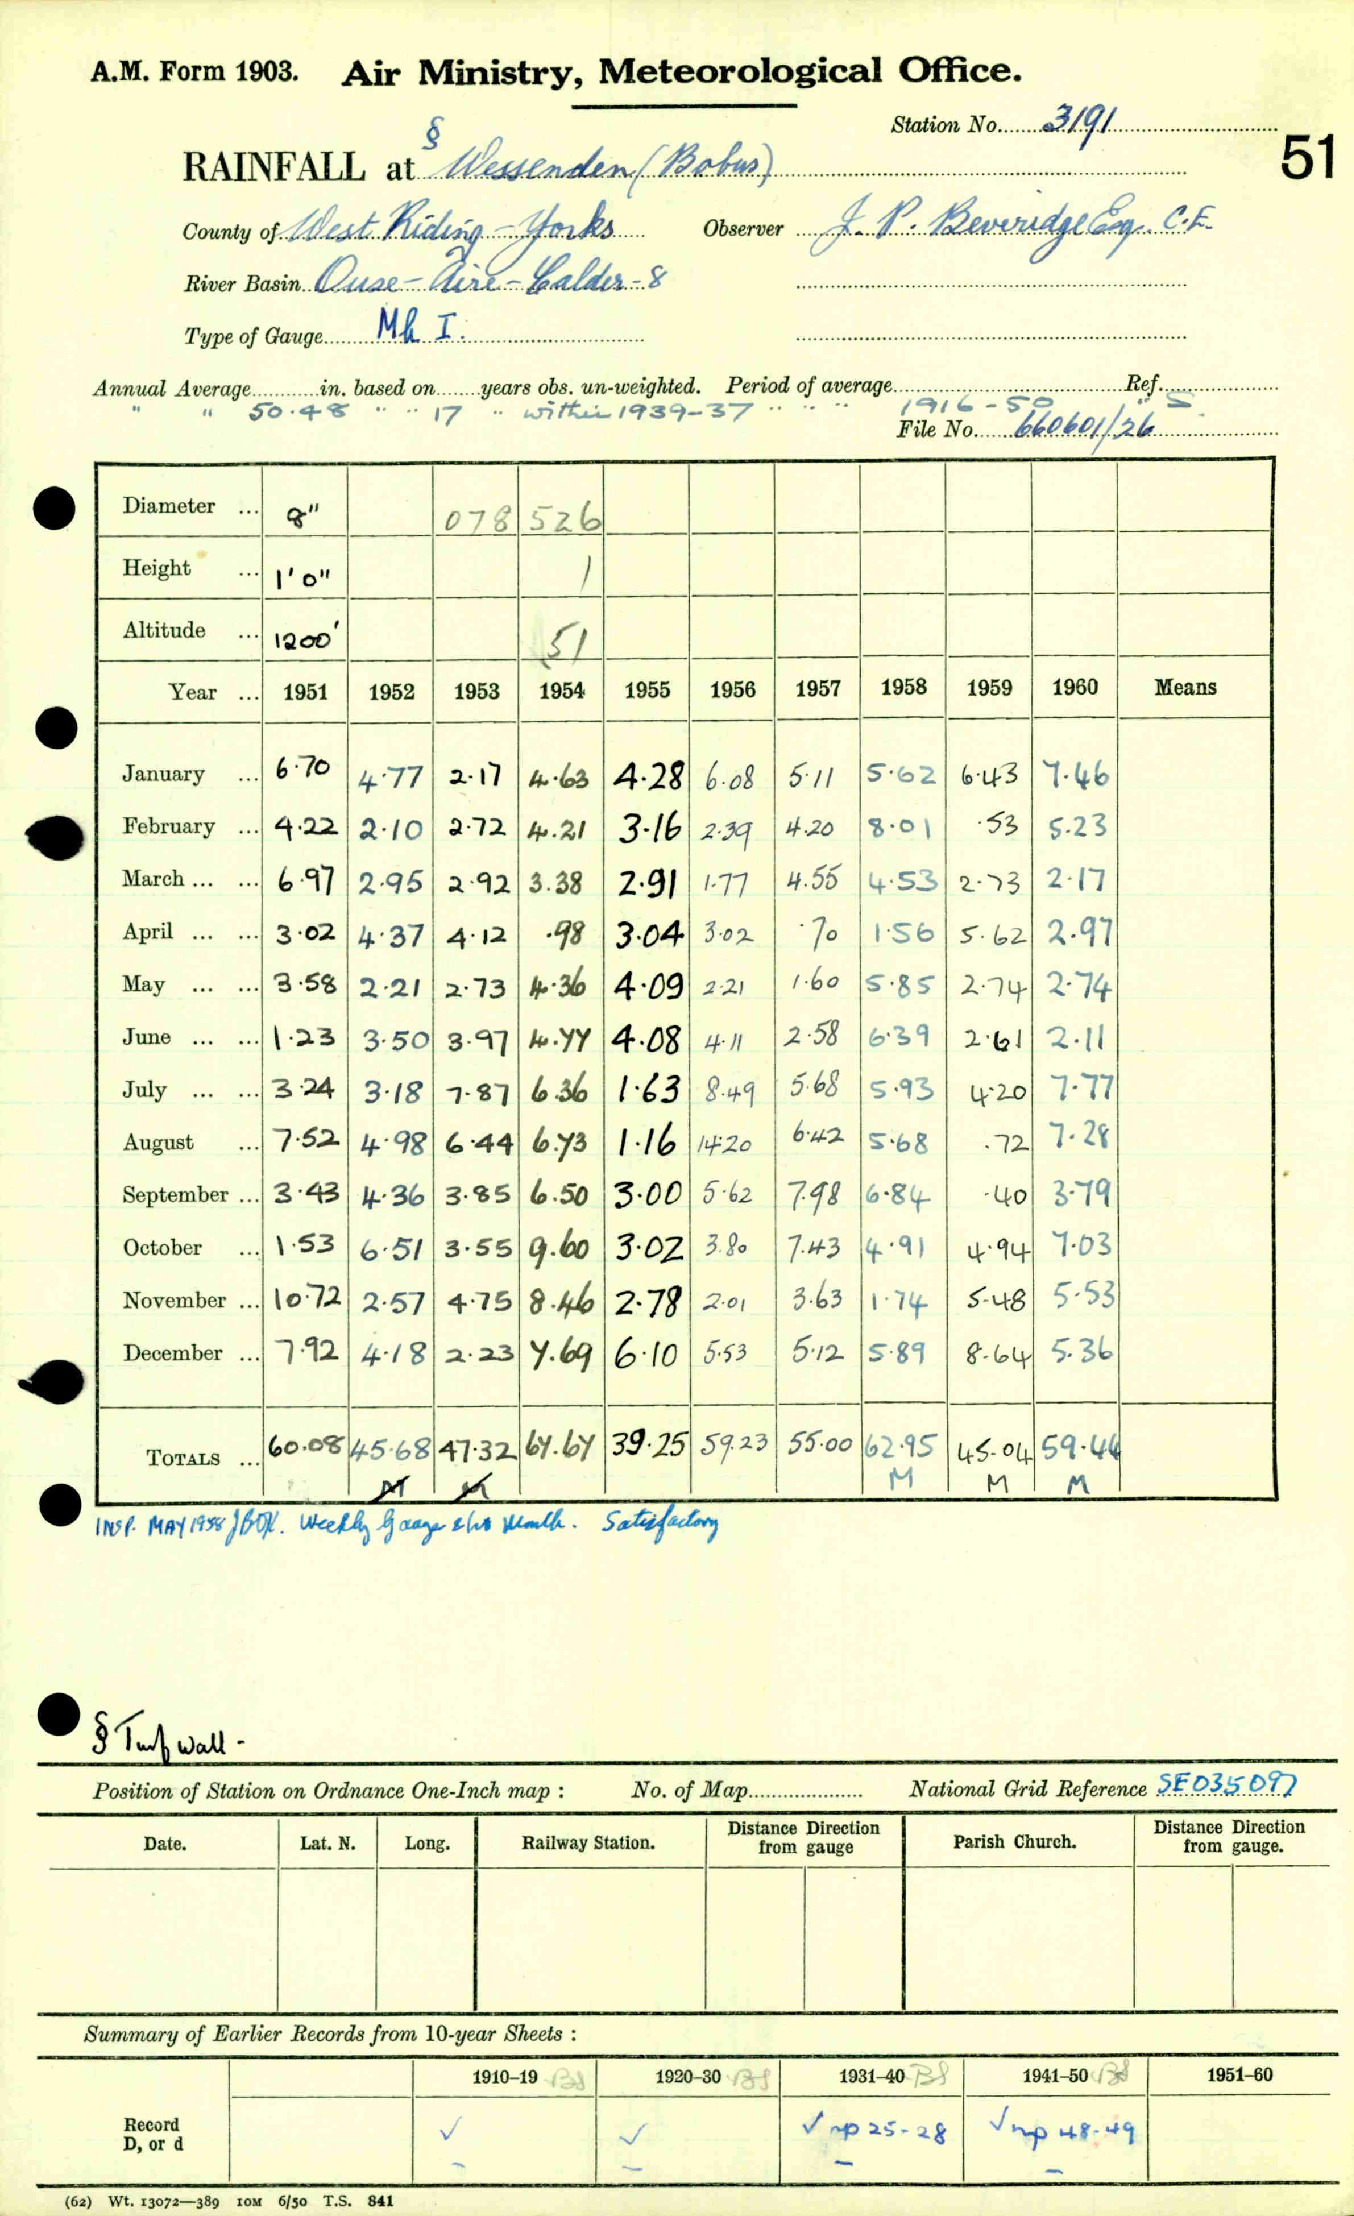 A.M. Form 1903. Air Ministry, Meteorological Office.
Station No. 3191
51
§
RAINFALL at Wessenden (Bobus)
County of West Riding - Yorks Observer J. P. Beveridge Esq. C.E.
River Basin Ouse - Aire - Calder - 8
Type of Gauge Mk I.
Annual Average in. based on years obs. un-weighted. Period of average Ref.
" " 50.48 " " 17 " within 1939-37 " " " 1916-50 " S.
File No. 660601/26
Diameter ... 8" 078 526
Height ... 1'0" 1
Altitude ... 1200' 51
Year ... 1951 1952 1953 1954 1955 1956 1957 1958 1959 1960 Means
January ... 6.70 4.77 2.17 4.63 4.28 6.08 5.11 5.62 6.43 7.46
February ... 4.22 2.10 2.72 4.21 3.16 2.39 4.20 8.01 .53 5.23
March ... ... 6.97 2.95 2.92 3.38 2.91 1.77 4.55 4.53 2.73 2.17
April ... ... 3.02 4.37 4.12 .98 3.04 3.02 .70 1.56 5.62 2.97
May ... ... 3.58 2.21 2.73 4.36 4.09 2.21 1.60 5.85 2.74 2.74
June ... ... 1.23 3.50 3.97 4.77 4.08 4.11 2.58 6.39 2.61 2.11
July ... ... 3.24 3.18 7.87 6.36 1.63 8.49 5.68 5.93 4.20 7.77
August ... 7.52 4.98 6.44 6.73 1.16 14.20 6.42 5.68 .72 7.28
September ... 3.43 4.36 3.85 6.50 3.00 5.62 7.98 6.84 .40 3.79
October ... 1.53 6.51 3.55 9.60 3.02 3.80 7.43 4.91 4.94 7.03
November ... 10.72 2.57 4.75 8.46 2.78 2.01 3.63 1.74 5.48 5.53
December ... 7.92 4.18 2.23 7.69 6.10 5.53 5.12 5.89 8.64 5.36
TOTALS ... 60.08 45.68 47.32 67.67 39.25 59.23 55.00 62.95 45.04 59.44
M M M M M
INSP. MAY 1958 Weekly Gauge Month. Satisfactory
§ Turf wall -
Position of Station on Ordnance One-Inch map : No. of Map National Grid Reference SE035097
Date. Lat. N. Long. Railway Station. Distance from Direction gauge Parish Church. Distance from Direction gauge.
Summary of Earlier Records from 10-year Sheets :
1910-19 BS 1920-30 BS 1931-40 BS 1941-50 BS 1951-60
Record ✓ ✓ ✓ np 25-28 ✓ np 48-49
D, or d - - - -
(62) Wt. 13072—389 10M 6/50 T.S. 841